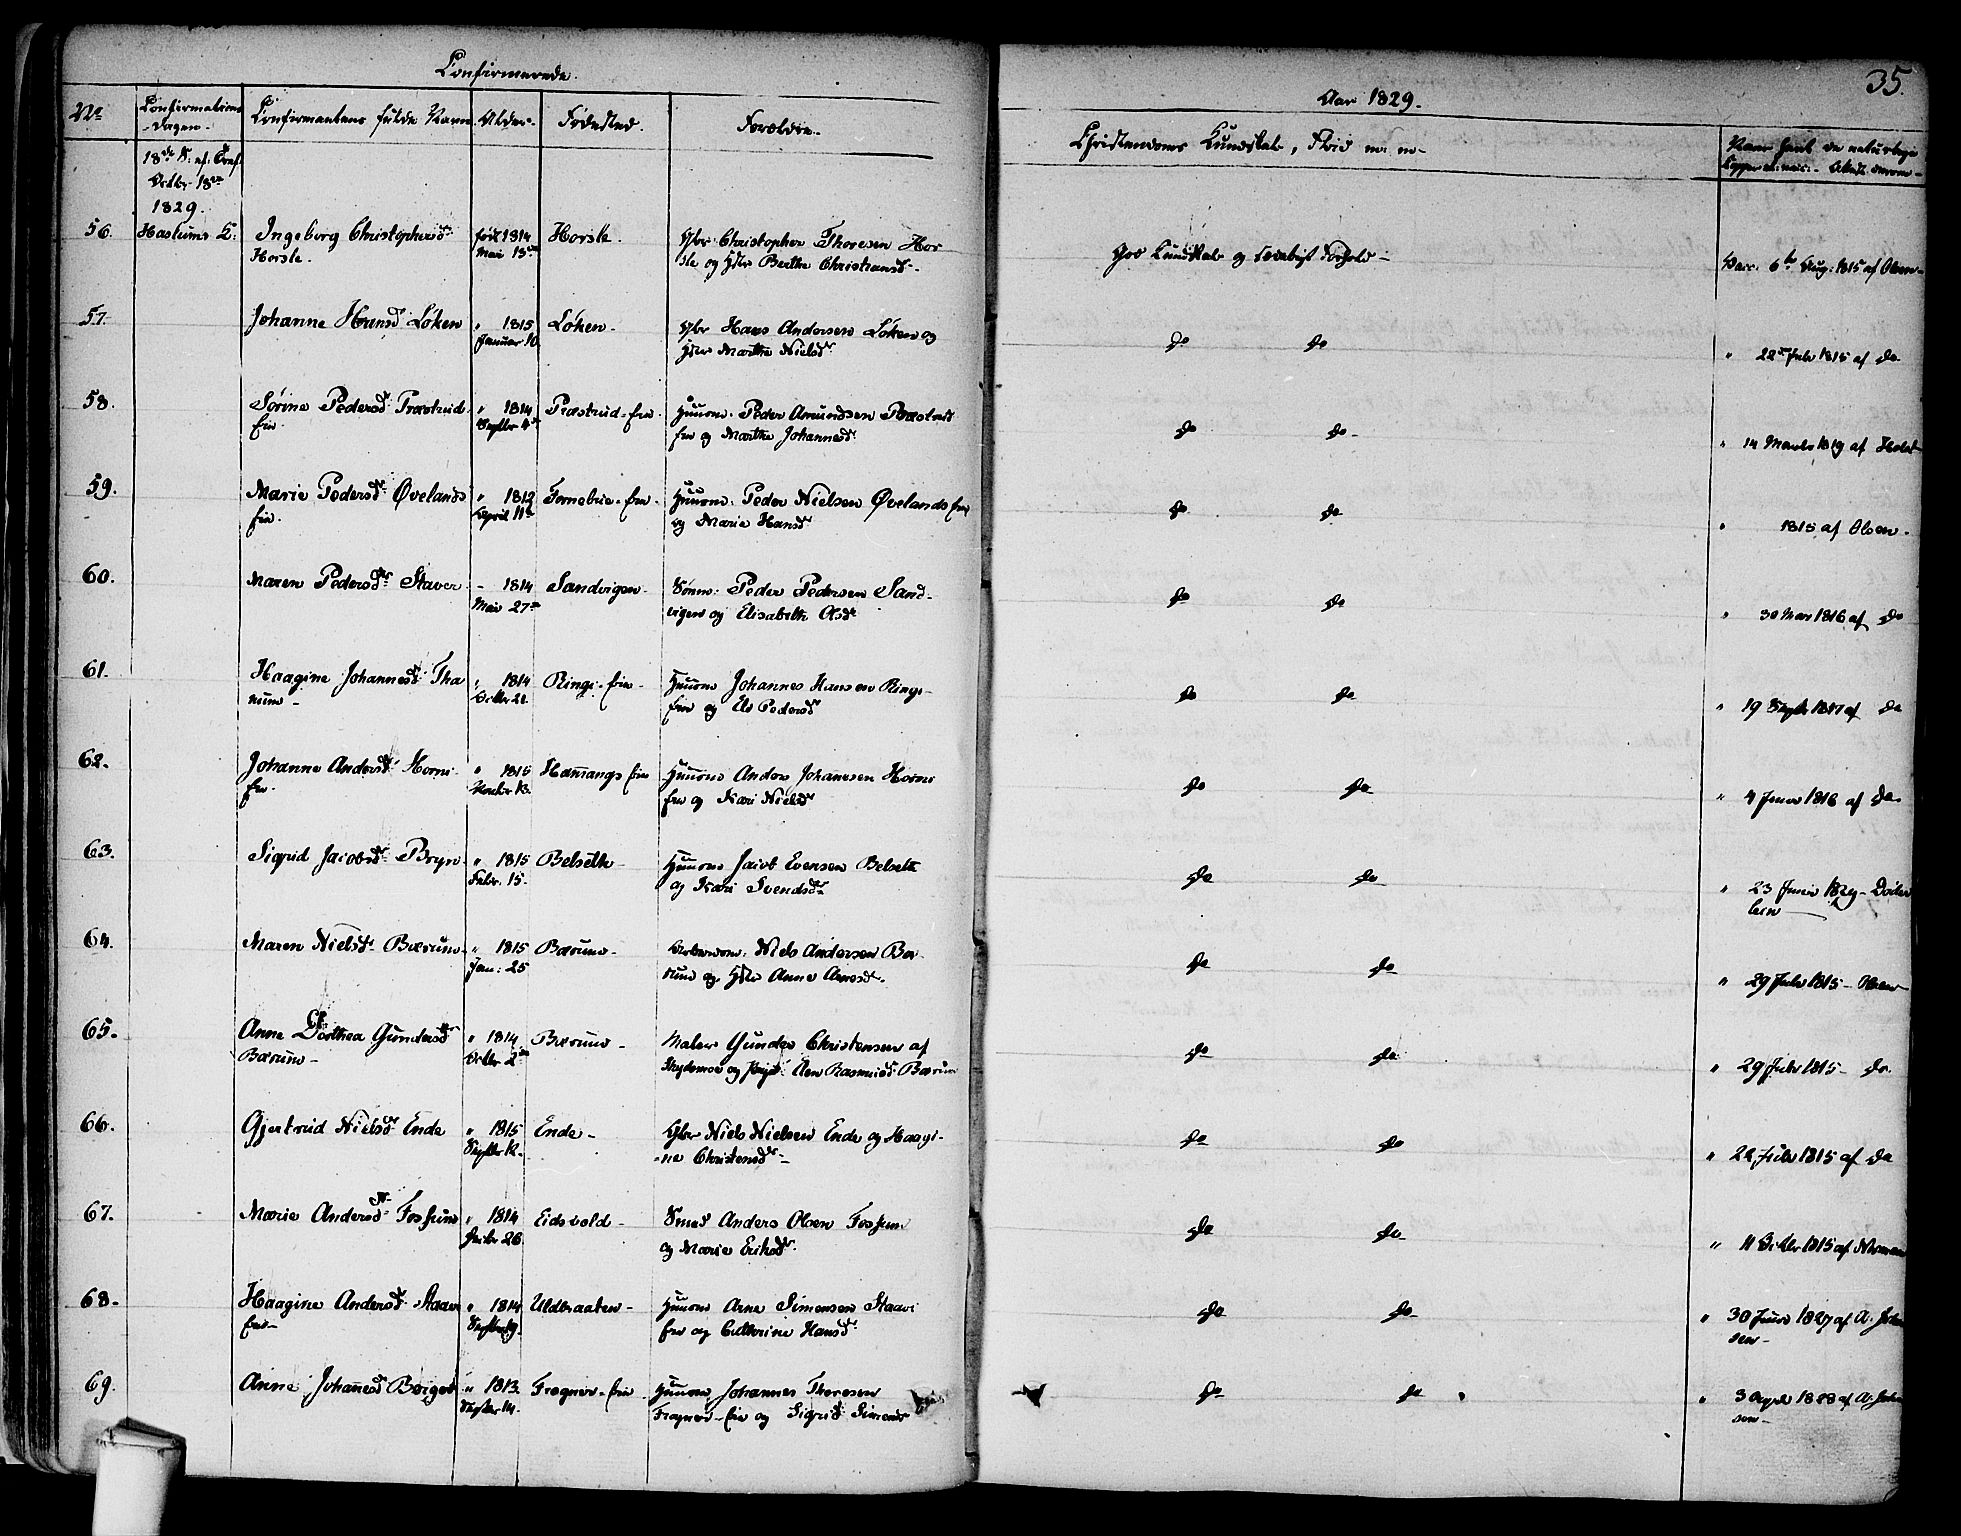 Confirmerede.
Aar 1829.
35.
No
Confirmations
-Dagen-
Confirmantens fulde Navn
Alder-
Fødested.
Forældre.
Christendoms Kundskab, Flid m. m-
Naar havt de naturlige
Kopper ell. vacc:- Attest derom-
18de S: af: Tref.
Octbr 18de
1829.
Haslums K:
56.
Ingeborg Christophersdr
Horsle.
født 1814
Mai 15de
Horsle.
Gbr: Christopher Thoresen Hor
sle og Hstr Berthe Christiansdr.
God Kundskab og sædeligt Forhold-
Vacc. 6te Aug: 1815 af Olsen-
57.
Johanne Hansdr Løken
" 1815
Januar 10.
Løken-
Gbr Hans Andersen Løken og
Hstr Marthe Nielsdr
do do
" 22de Julii 1815 af do
58.
Sørine Pedersdr Præstrud
eie.
" 1814
Septbr 4de
Præstrud-eie-
Huusm: Peder Amundsen Præstrud
eie og Marthe Johannesdr
do do-
" 14 Marts 1819 af Holst
59.
Marie Pedersdr Øvelands
eie.
" 1812
April 11te
Fornebue-eie-
Huusm: Peder Nielsen Øvelands eie
og Marie Hansdr
do do
" 1815 af Olsen-
60.
Maren Pedersdr Staver
- 1814
Mai 27de
Sandvigen-
Peder Pedersen Sand-
vigen og Elisabeth Olsdr
do do
" 30 Mai 1816 af do
61.
Haagine Johannesdr Tha
num-
" 1814
Octbr 21.
Ringi-eie-
Huusm Johannes Hansen Ringi-
eie og Els Pedersdr
do do
" 19 Septbr 1817 af do
62.
Johanne Andersdr Horni-
eie.
" 1815
13.
Hamangs eie
Huusm Anders Johannesen Horni
eie og Kari Nielsdr
do do-
" 4 Junii 1816 af do-
63.
Sigrid Jacobsdr Bryn-
" 1815
Febr. 15.
Belseth-
Huusm Jacob Evensen Belseth
og Kari Svendsdr
do do-
" 23 Junii 1829- Døder
lein-
64.
Maren Nielsdr Bærum-
" 1815
Jan: 25
Bærum-
Niels Andersen Bæ-
rum og Hstr Anne Arnesdr.
do do-
" 29 Julii 1815- Olsen
65.
Anne Dorthea Gundersdr
Bærum-
" 1814
Octbr 2den
Bærum-
Maler Gunder Christensen af
og Pige Aen Rasmusdr Bærum
do do
" 29 Julii 1815- do
66.
Gjertrud Nielsdr Ende
" 1815
Septbr 12.
Ende-
Gbr Niels Nielsen Ende og Haagi-
-ne Christensdr-
do do
" 22 Julii 1815 af do
67.
Marie Andersdr Fossum
" 1814
26
Eidsvold-
Smed Anders Olsen Fossum
og Marie Eriksdr
do do-
" 11 Octbr 1815 af Norman
68-
Haagine Andersdr Staavi
eie-
" 1814
Septbr 9.
Uldbraaten-
Huusm Arne Simensen Staavi
eie og Cathrine Hansdr
do do-
" 30 Junii 1827 af A. Johan
sen-
69.
Anne Johannesdr Borgen
" 1813.
Septbr 14.
Frogner-eie-
Huusm Johannes Thoresen
Frogner-eie og Sigrid Simensdr
do do
" 3 April 1828 af A. Johan
sen-